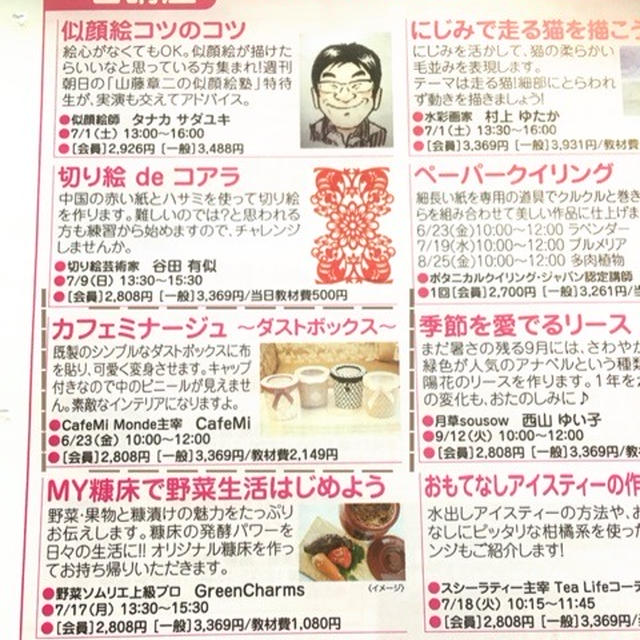 似顔絵コツのコツ
絵心がなくてもOK。似顔絵が描けた
らいいなと思っている方集まれ!週刊
朝日の「山藤章二の似顔絵塾」特待
生が、実演も交えてアドバイス。
●似顔絵師 タナカ サダユキ
●7/1(土) 13:00~16:00
●[会員]2,926円 [一般]3,488円
切り絵 de コアラ
中国の赤い紙とハサミを使って切り絵
を作ります。難しいのでは?と思われる
方も練習から始めますので、チャレンジ
しませんか。
●切り絵芸術家 谷田 有似
●7/9(日) 13:30~15:30
●[会員]2,808円 [一般]3,369円/当日教材費500円
カフェミナージュ ~ダストボックス~
既製のシンプルなダストボックスに布
を貼り、可愛く変身させます。キャップ
付きなので中のビニールが見えませ
ん。素敵なインテリアになりますよ。
●CafeMi Monde主宰 CafeMi
●6/23(金) 10:00~12:00
●[会員]2,808円 [一般]3,369円/教材費2,149円
MY糠床で野菜生活はじめよう
野菜・果物と糠漬けの魅力をたっぷり
お伝えします。糠床の発酵パワーを
日々の生活に!! オリジナル糠床を作っ
てお持ち帰りいただきます。
〈イメージ〉
●野菜ソムリエ上級プロ GreenCharms
●7/17(月) 13:30~15:30
●[会員]2,808円 [一般]3,369円/教材費1,080円
にじみで走る猫を描こう
にじみを活かして、猫の柔らかい
毛並みを表現します。
テーマは走る猫!細部にとらわれ
ず動きを描きましょう!
●水彩画家 村上 ゆたか
●7/1(土) 13:30~16:00
●[会員]3,369円 [一般]3,931円/教材費
ペーパークイリング
細長い紙を専用の道具でクルクルと巻き
らを組み合わせて美しい作品に仕上げま
6/23(金)10:00~12:00 ラベンダー
7/19(水)10:00~12:00 プルメリア
8/25(金)10:00~12:00 多肉植物
●ボタニカルクイリング・ジャパン認定講師
●1回[会員]2,700円 [一般]3,261円/当
季節を愛でるリース
まだ暑さの残る9月には、さわやか
緑色が人気のアナベルという種類
陽花のリースを作ります。1年を
の変化も、おたのしみに♪
●月草sousow 西山 ゆい子
●9/12(火) 10:00~12:00
●[会員]2,808円 [一般]3,369円/教
おもてなしアイスティーの作
水出しアイスティーの方法や、お
なしにピッタリな柑橘系を使った
ンジもご紹介します!
●スシーラティー主宰 Tea Lifeコーデ
●7/18(火) 10:15~11:45
●[会員]2,808円 [一般]3,369円/